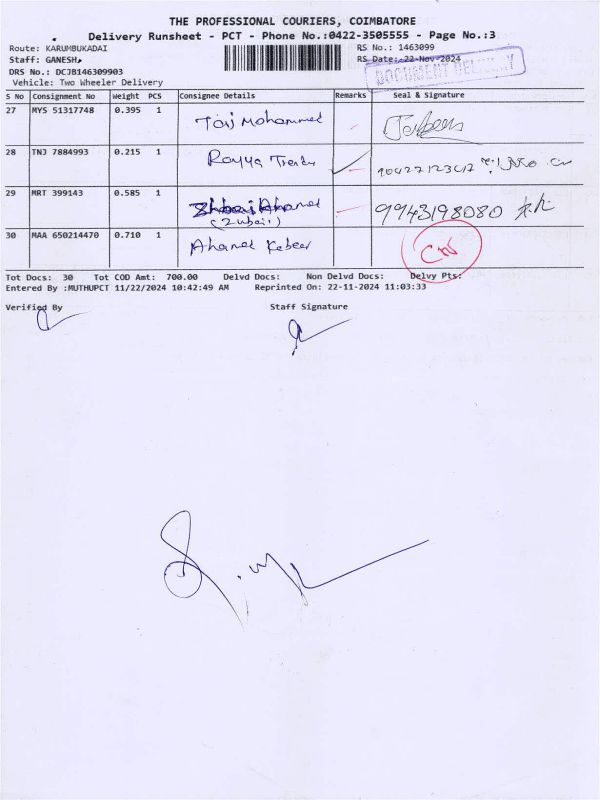 THE PROFESSIONAL COURIERS, COIMBATORE
Delivery Runsheet - PCT - Phone No.:0422-3505555 - Page No.:3
Route: KARUMBUKADAI
RS No.: 1463099
Staff: GANESH
RS Date: 22-Nov-2024
DOCUMENT DELIVERY
DRS No.: DCJB146309903
Vehicle: Two Wheeler Delivery
S No Consignment No Weight PCS Consignee Details Remarks Seal & Signature
27 MYS 51317748 0.395 1 Taj Mohammed
28 TNJ 7884993 0.215 1 Rayya
29 MRT 399143 0.585 1 Ahamed 9943198080
(Zubair)
30 MAA 650214470 0.710 1 Ahamed Kabeer
Tot Docs: 30 Tot COD Amt: 700.00 Delvd Docs: Non Delvd Docs: Delvy Pts:
Entered By :MUTHUPCT 11/22/2024 10:42:49 AM Reprinted On: 22-11-2024 11:03:33
Verified By Staff Signature